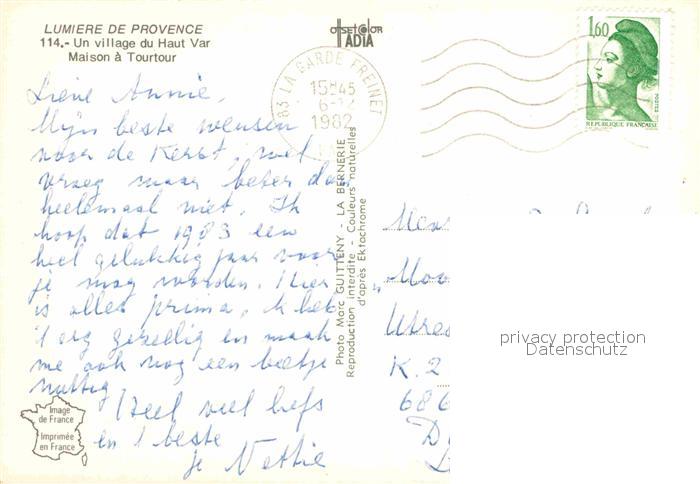 LUMIERE DE PROVENCE
114.- Un village du Haut Var
Maison à Tourtour
offset color
ADIA
83 LA GARDE FREINET
15H45
6-12
1982
VAR
1,60
POSTES
REPUBLIQUE FRANÇAISE
Lieve Annie,
Mijn beste wensen
voor de Kerst, wel
vroeg maar beter dan
heelemaal niet. Ik
hoop dat 1983 een
heel gelukkig jaar voor
je mag worden. Hier
is alles prima, ik heb
't erg gezellig en maak
me ook nog een beetje
nuttig
Heel veel liefs
en 't beste
je Nettie
Photo Marc GUITTENY - LA BERNERIE
Reproduction interdite - Couleurs naturelles
d'après Ektachrome
K. 2
686
privacy protection
Datenschutz
Image
de France
Imprimée
en France